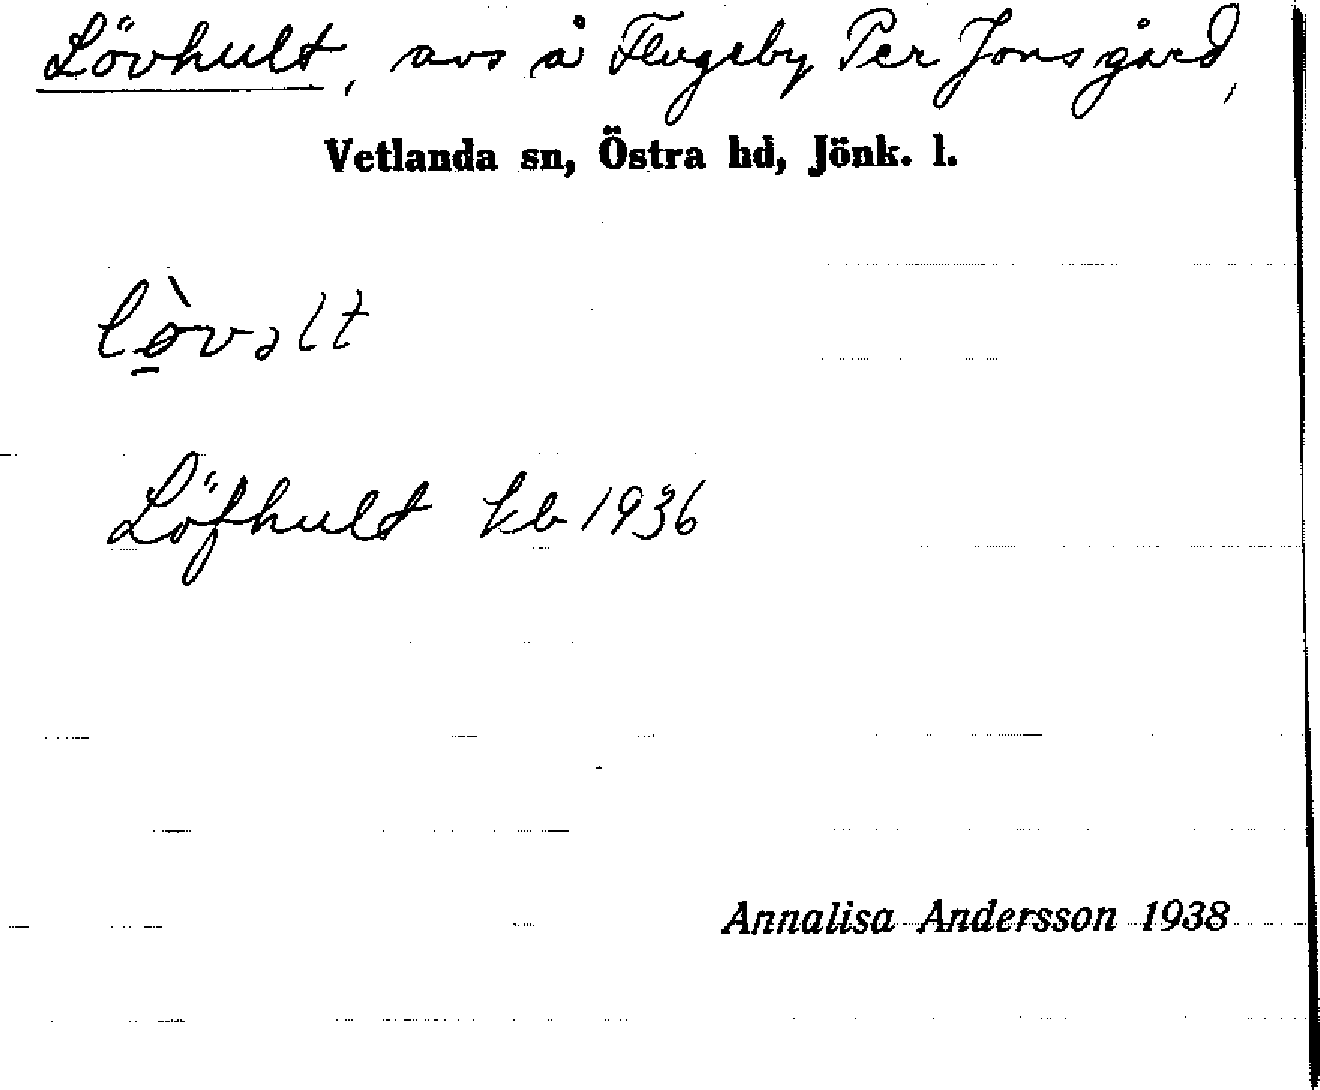 Lövhult, avs å Flugeby Per Jonsgård,
Vetlanda sn, Östra hd, Jönk. l.
lø̀vəlt
Löfhult kb 1936
Annalisa Andersson 1938